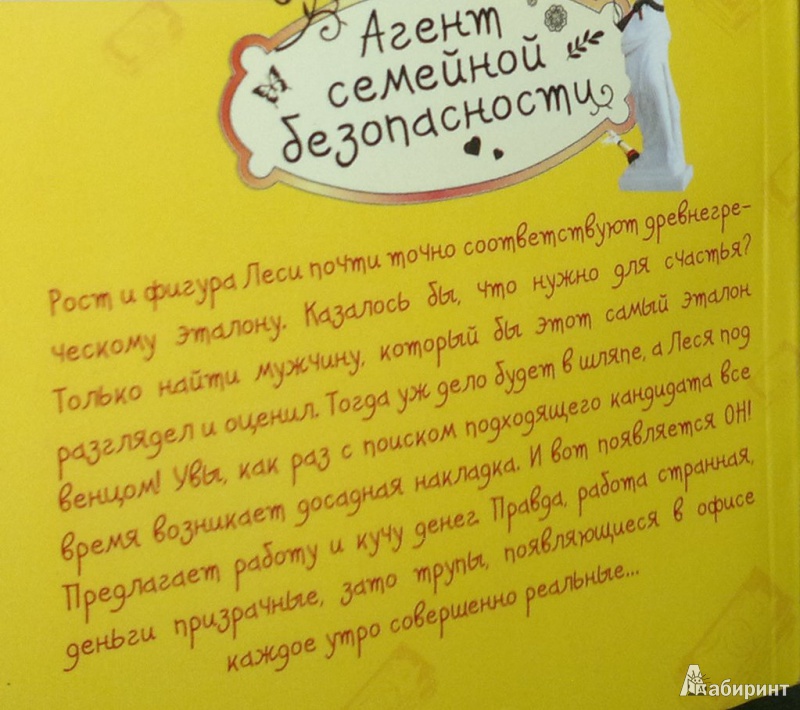 Агент
семейной
безопасности
Рост и фигура Леси почти точно соответствуют древнегре-
ческому эталону. Казалось бы, что нужно для счастья?
Только найти мужчину, который бы этот самый эталон
разглядел и оценил. Тогда уж дело будет в шляпе, а Леся под
венцом! Увы, как раз с поиском подходящего кандидата все
время возникает досадная накладка. И вот появляется ОН!
Предлагает работу и кучу денег. Правда, работа странная,
деньги призрачные, зато трупы, появляющиеся в офисе
каждое утро совершенно реальные...
Лабиринт